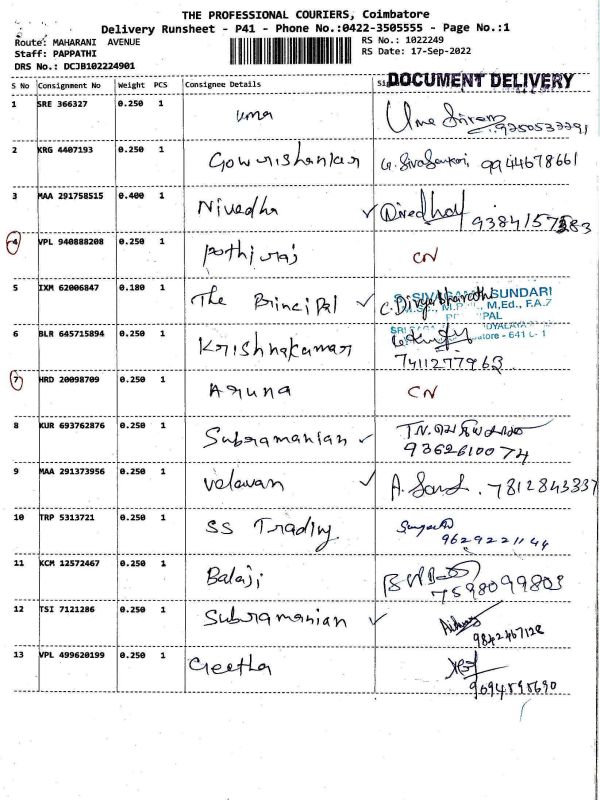 THE PROFESSIONAL COURIERS, Coimbatore
Delivery Runsheet - P41 - Phone No.:0422-3505555 - Page No.:1
Route: MAHARANI AVENUE RS No.: 1022249
Staff: PAPPATHI RS Date: 17-Sep-2022
DRS No.: DCJB102224901
DOCUMENT DELIVERY
S No Consignment No Weight PCS Consignee Details
1 SRE 366327 0.250 1 Uma Uma Sriram
2 KRG 4407193 0.250 1 Gowrishankar G. Sivasankari, 9944678661
3 MAA 291758515 0.400 1 Nivedha ✓ Nivedha
4 VPL 940888208 0.250 1 Pothiraj CN
5 IXM 62006847 0.180 1 The Principal ✓ C. Divyabharathi
SUNDARI
M,Ed.,
6 BLR 645715894 0.250 1 Krishnakumar
7411277963
7 HRD 20098709 0.250 1 Aruna CN
8 KUR 693762876 0.250 1 Subramanian ✓
9362610074
9 MAA 291373956 0.250 1 Valavan ✓ A. 7812843337
10 TRP 5313721 0.250 1 SS Trading
9629221144
11 KCM 12572467 0.250 1 Balaji
7598099803
12 TSI 7121286 0.250 1 Subramanian ✓
9842467128
13 VPL 499620199 0.250 1 Geetha